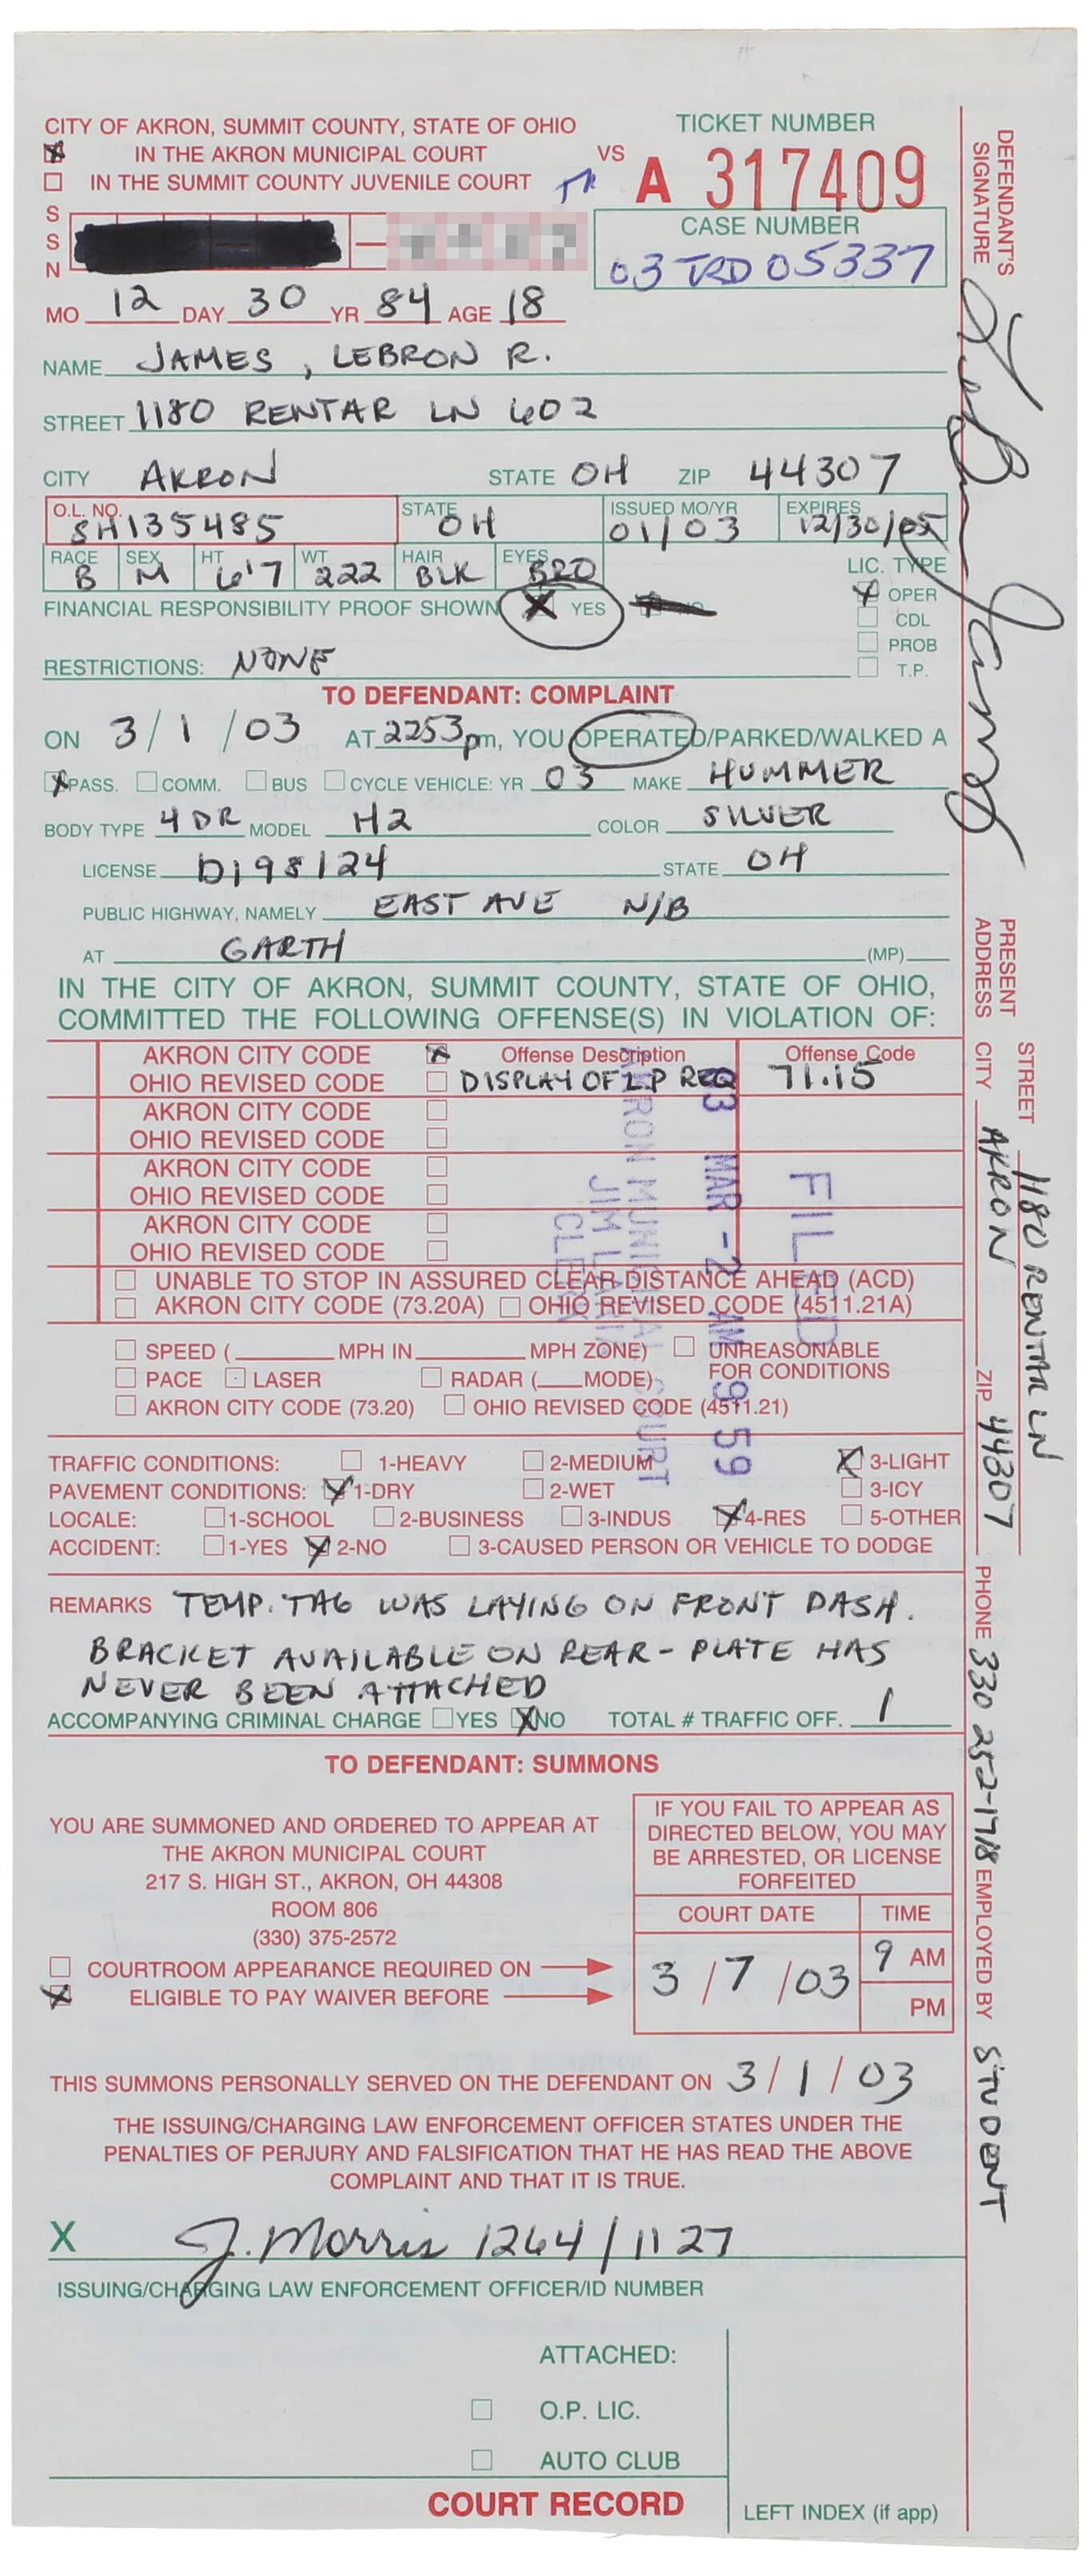 CITY OF AKRON, SUMMIT COUNTY, STATE OF OHIO
IN THE AKRON MUNICIPAL COURT
IN THE SUMMIT COUNTY JUVENILE COURT
VS
TICKET NUMBER
A 317409
CASE NUMBER
03 TRD 05337
SSN
MO 12 DAY 30 YR 84 AGE 18
NAME JAMES, LEBRON R.
STREET 1180 RENTAR LN 602
CITY AKRON STATE OH ZIP 44307
O.L. NO. SH135485 STATE OH ISSUED MO/YR 01/03 EXPIRES 12/30/05
RACE B SEX M HT 6'7 WT 222 HAIR BLK EYES BRO
LIC. TYPE
OPER
CDL
PROB
T.P.
FINANCIAL RESPONSIBILITY PROOF SHOWN YES
RESTRICTIONS: NONE
TO DEFENDANT: COMPLAINT
ON 3/1/03 AT 2253 pm, YOU OPERATED/PARKED/WALKED A
PASS. COMM. BUS CYCLE VEHICLE: YR 03 MAKE HUMMER
BODY TYPE 4DR MODEL H2 COLOR SILVER
LICENSE D198124 STATE OH
PUBLIC HIGHWAY, NAMELY EAST AVE N/B
AT GARTH (MP)
IN THE CITY OF AKRON, SUMMIT COUNTY, STATE OF OHIO,
COMMITTED THE FOLLOWING OFFENSE(S) IN VIOLATION OF:
AKRON CITY CODE Offense Description Offense Code
OHIO REVISED CODE DISPLAY OF L.P REQ 71.15
AKRON CITY CODE
OHIO REVISED CODE
AKRON CITY CODE
OHIO REVISED CODE
AKRON CITY CODE
OHIO REVISED CODE
UNABLE TO STOP IN ASSURED CLEAR DISTANCE AHEAD (ACD)
AKRON CITY CODE (73.20A) OHIO REVISED CODE (4511.21A)
SPEED ( MPH IN MPH ZONE) UNREASONABLE
FOR CONDITIONS
PACE LASER RADAR ( MODE)
AKRON CITY CODE (73.20) OHIO REVISED CODE (4511.21)
FILED
03 MAR -2 AM 9 59
AKRON MUNICIPAL COURT
JIM LARIA
CLERK
TRAFFIC CONDITIONS: 1-HEAVY 2-MEDIUM 3-LIGHT
PAVEMENT CONDITIONS: 1-DRY 2-WET 3-ICY
LOCALE: 1-SCHOOL 2-BUSINESS 3-INDUS 4-RES 5-OTHER
ACCIDENT: 1-YES 2-NO 3-CAUSED PERSON OR VEHICLE TO DODGE
REMARKS TEMP. TAG WAS LAYING ON FRONT DASH.
BRACKET AVAILABLE ON REAR - PLATE HAS
NEVER BEEN ATTACHED
ACCOMPANYING CRIMINAL CHARGE YES NO TOTAL # TRAFFIC OFF. 1
TO DEFENDANT: SUMMONS
YOU ARE SUMMONED AND ORDERED TO APPEAR AT
THE AKRON MUNICIPAL COURT
217 S. HIGH ST., AKRON, OH 44308
ROOM 806
(330) 375-2572
COURTROOM APPEARANCE REQUIRED ON
ELIGIBLE TO PAY WAIVER BEFORE
IF YOU FAIL TO APPEAR AS
DIRECTED BELOW, YOU MAY
BE ARRESTED, OR LICENSE
FORFEITED
COURT DATE TIME
3/7/03 9 AM
PM
THIS SUMMONS PERSONALLY SERVED ON THE DEFENDANT ON 3/1/03
THE ISSUING/CHARGING LAW ENFORCEMENT OFFICER STATES UNDER THE
PENALTIES OF PERJURY AND FALSIFICATION THAT HE HAS READ THE ABOVE
COMPLAINT AND THAT IT IS TRUE.
X J. Morris 1264/1127
ISSUING/CHARGING LAW ENFORCEMENT OFFICER/ID NUMBER
ATTACHED:
O.P. LIC.
AUTO CLUB
COURT RECORD
LEFT INDEX (if app)
DEFENDANT'S
SIGNATURE LeBron James
PRESENT
ADDRESS
STREET 1180 RENTAR LN
CITY AKRON ZIP 44307 PHONE 330 252-1718 EMPLOYED BY STUDENT